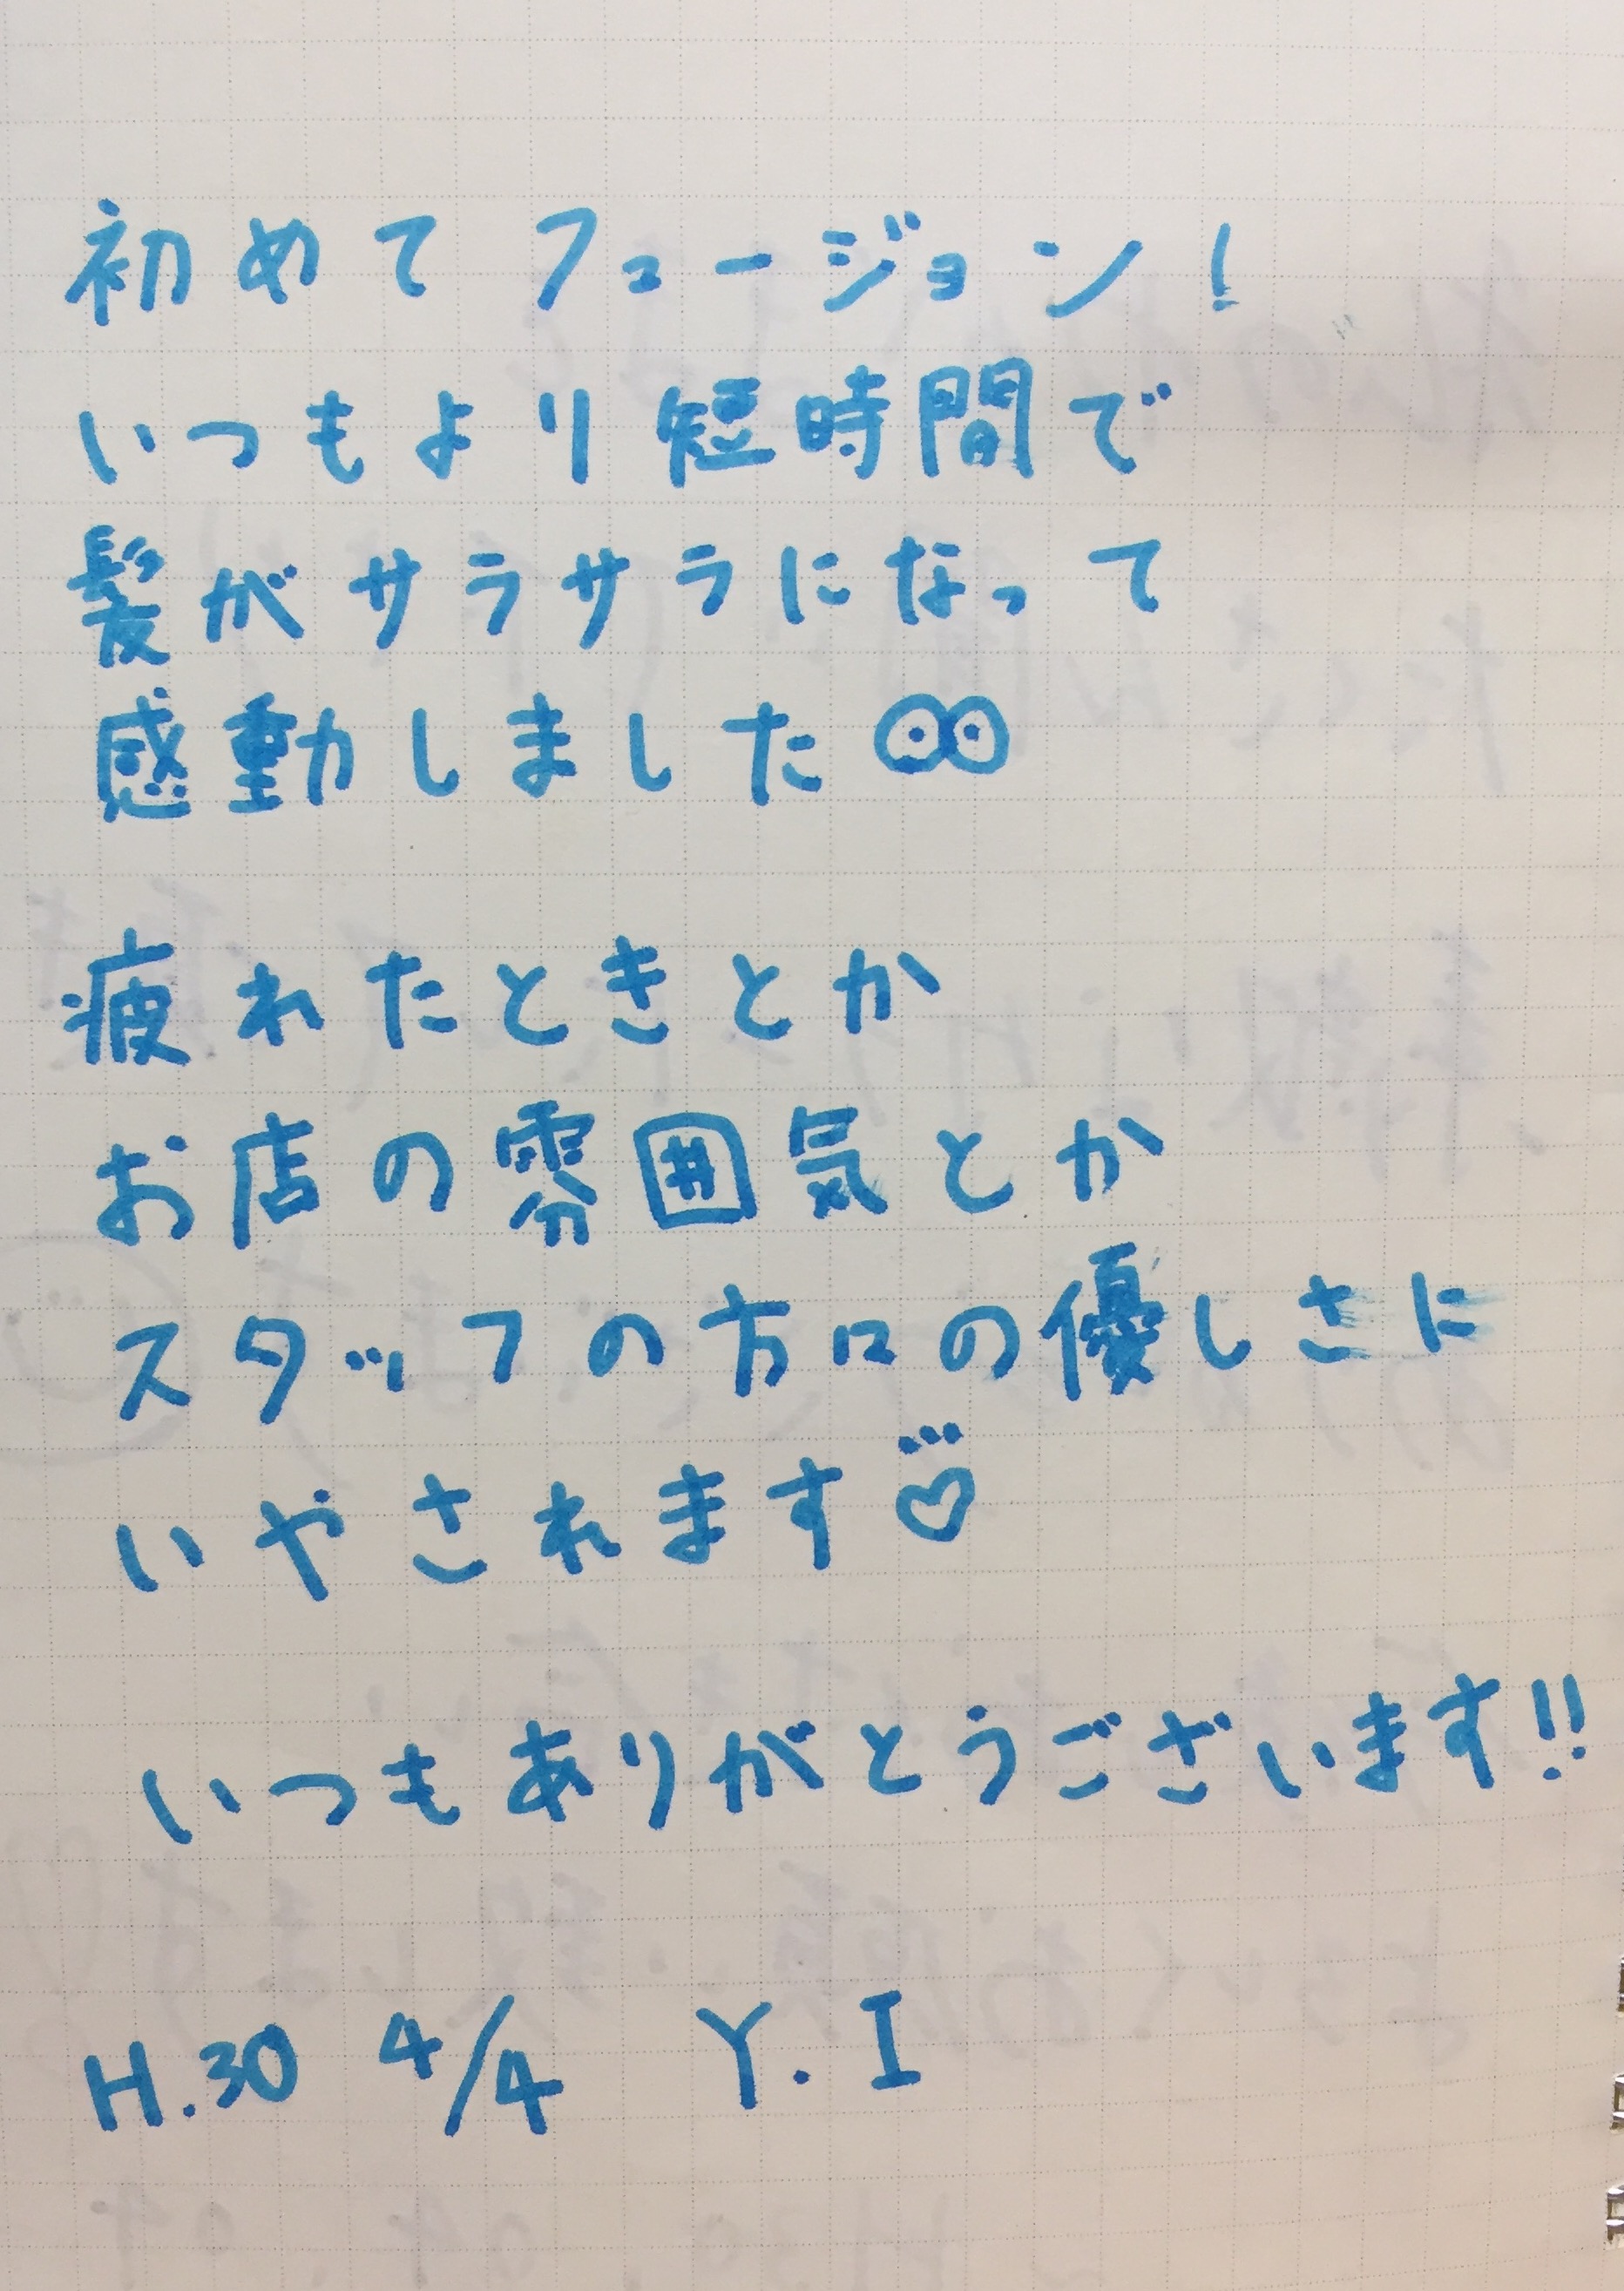 初めてフュージョン!
いつもより短時間で
髪がサラサラになって
感動しました
疲れたときとか
お店の雰囲気とか
スタッフの方々の優しさに
いやされます♡
いつもありがとうございます!!
H.30 4/4 Y.I